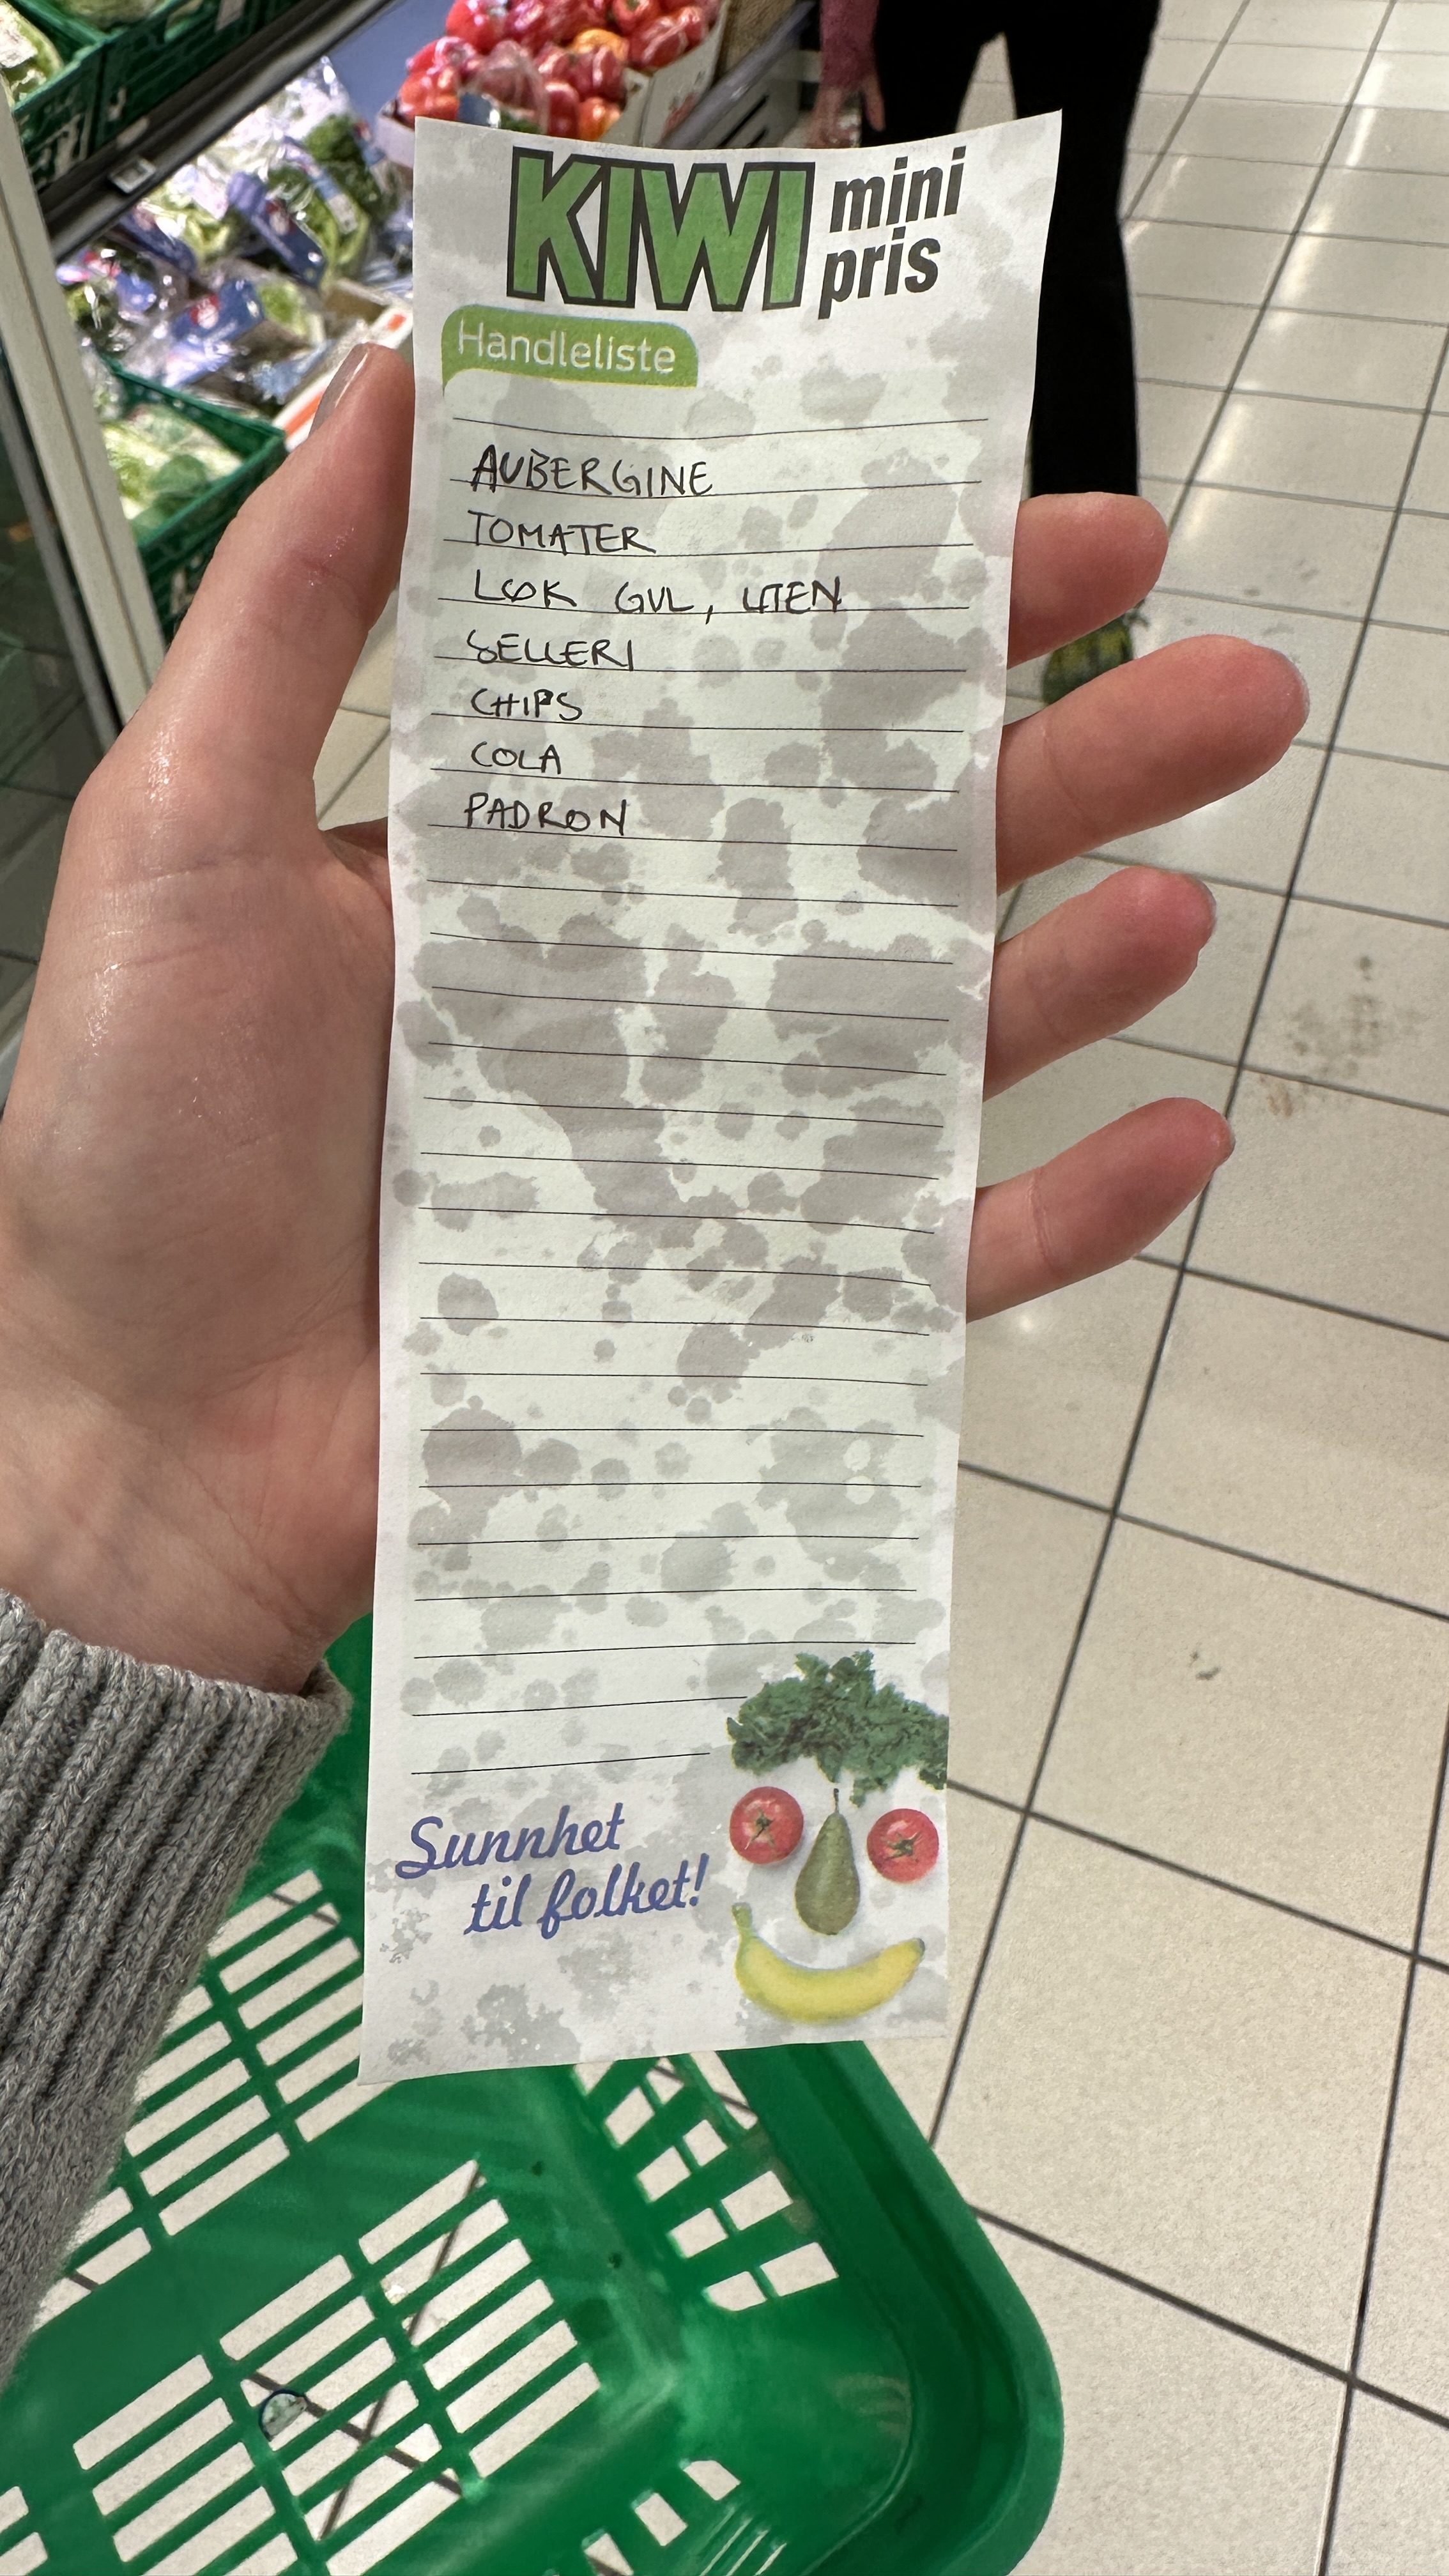 KIWI mini pris
Handleliste
AUBERGINE
TOMATER
LØK GUL, UTEN
SELLERI
CHIPS
COLA
PADRON
Sunnhet
til folket!